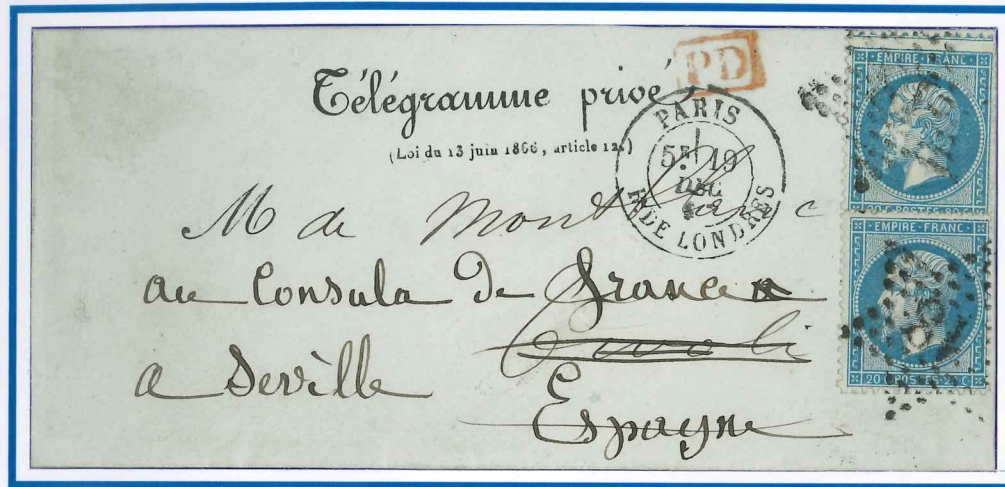 Télégramme privé
(Loi du 13 juin 1866, article 12.)
PD
PARIS
5E 19
DEC
R. DE LONDRES
EMPIRE · FRANC
20 C POSTES 20 C
EMPIRE · FRANC
20 C POSTES 20 C
M de
au Consula de France
a Séville
Espagne